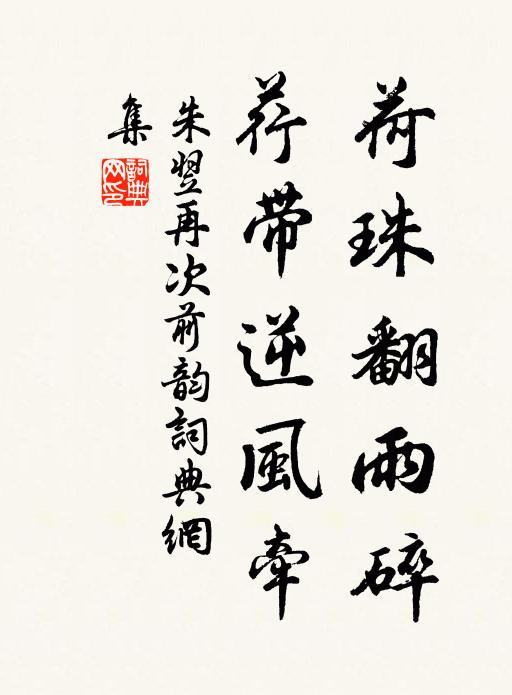 荷珠翻雨碎
荇帶逆風牽
朱翌再次前韵詞典網
集
詞典網印